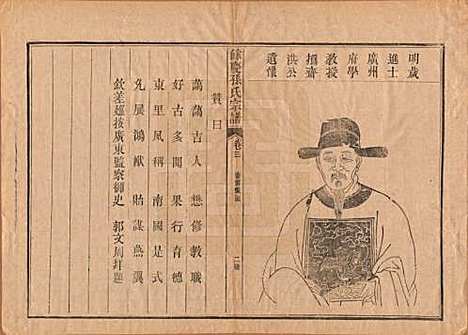 明歲
進士
廣州
府學
教授
擂齋
洪公
遺像
餘慶孫氏宗譜
卷三
贊曰
藹藹吉人 懋修教職
好古多聞 果行育德
東里風稱 南國是式
克展鴻猷 貽謀燕翼
欽差廵按廣東監察御史 郭文周拜題